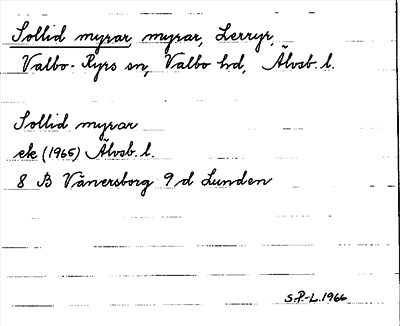 Sollid myrar, myrar, Lerryr,
Valbo-Ryrs sn, Valbo hd, Älvsb. l.
Sollid myrar
ek (1965) Älvsb. l.
8 B Vänersborg 9 d Lunden
S.P-L. 1966